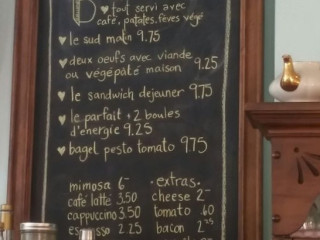 ♥ tout servi avec
café, patates, fèves végé
♥ le sud matin 9.75
♥ deux oeufs avec viande
ou végépâté maison 9.25
♥ le sandwich déjeuner 9.75
♥ le parfait + 2 boules
d'énergie 9.25
♥ bagel pesto tomato 9.75
mimosa 6 · extras.
café latté 3.50 cheese 2
cappuccino 3.50 tomato .60
espresso 2.25 bacon 2